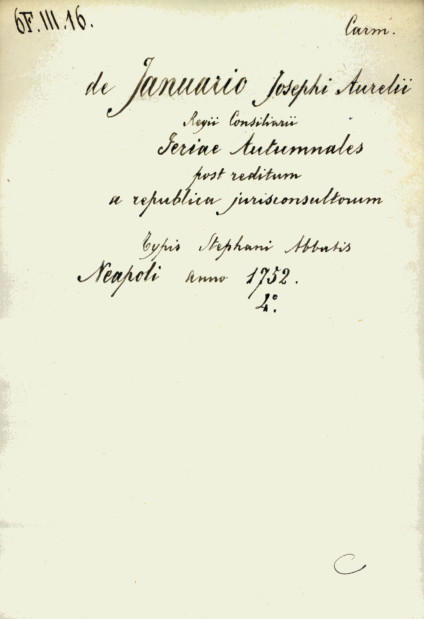 6F.III.16.
Carm.
de Januario Josephi Aurelii
Regii Consiliarii
Feriae Autumnales
post reditum
a republica jurisconsultorum
Typis Stephani Abbatis
Neapoli Anno 1752.
4°.
C